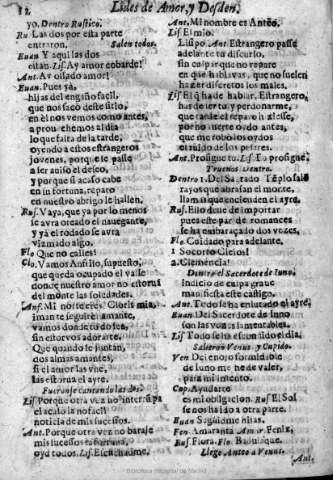 12 Lides de Amor, y Desden.
yo. Dentro Rustico.
Ru. Las dos por esta parte
entraron. Salen todos.
Euan. Y aqui las dos
estan. Lis. Ay amor cobarde!
Ant. Ay osado amor!
Euan. Pues ya,
hijas del engaño facil,
que nos sacò deste sitio,
en èl nos vemos como antes,
aprouechemos al dia
lo que falta de la tarde,
oyendo a estos estrangeros
jovenes, porque te passe
a ser aniso el deico,
y porque si acaso cabe
en infortunio, reparo
en nuestro abrigo le hallen.
Rus. Vaya, que ya por lo menos
se avrà oteado el nauegante,
y ya el rodado se avrà
vizmado algo.
Flo Que no calles!
Clo. Vamos Anfilo, supuesto,
que queda ocupado el valle
donde nuestro amor no estorua
del monte las soledades.
Anf. Mi norte eres, Cloris mia,
iman te seguirè amante,
vamos donde tu dosea,
sin estorvos adorarte,
Que quando le juntan,
dos almas amantes,
si el amor las vne,
las estorua el ayre.
Vanse cantando las dos
Lis. Porque otra vez no interrumpa
el acaso la no facil
noticia de mis sucessos.
Ant. Porque otra vez no baraje
mis sucessos la fortuna,
oyd todos. Lis. Escuchadme.
Ant. Mi nombre es Anteo.
Lis El mio.
Lisipo. Ant. Estrangero passe
adelante tu discurso,
sin culpar que no repare
en que hablavas, que no suelen
hazer discretos los males.
Lis El q̃ ha de hablar, Estrangero,
has de ser tu, y perdonarme,
que tarde el reparo hiziesse,
por no auerte oydo antes,
que me robò los oydos
el ruido de los pesares.
Ant. Prosigue tu. Lis. Tu prosigue.
Truenos Dentro.
Dentro 1. Del Sacrado Tẽplo sale
rayos que abrasan el monte,
llamas que encienden el ayre.
Rus. Esso deue de importar
pues este par de romances
se hà embaraçado dos vezes.
Flo. Cuidado para adelante.
1 Socorro Cielos!
2. Clemencia!
Dentro el Sacerdote de Iuno.
Indicio de culpa graue
manifiesta este castigo.
Ant. Todo se ha enlutado el ayre.
Euan Del Sacerdote de Iuno
son las vozes lamentables.
Lis Todo se ha escondido el dia.
Salieron Venus y Cupido.
Ven Del enojo formidable
de Iuno me he de valer,
para mi intento.
Cup. Ayudarte
es mi obligacion. Rus. El Sol
se nos ha ido a otra parte.
Euan Seguidme hijas.
Fen. Amaranta. Amar. Feniz.
Rus. Flora. Flo. Bastinque.
Llega Anteo à Venus.
Ant.
Biblioteca Nacional de Madrid